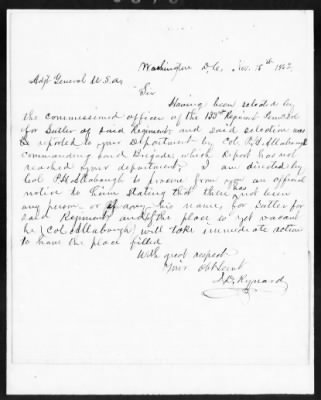 Washington D.C. Nov. 15th 1862
Adjt General U.S.A.
Sir
Having been selected by
the commissioned officer of the 133rd Regiment Penn Vol
for Sutler of said Regiment, and said selection was
reported to your Department by Col. P.H. Allabaugh
commanding said Brigade, which Report has not
reached your department, I am directed by
Col P.H. Allabaugh to procure from you an official
notice to him stating that there has not been
any person or of any his name, for Sutler for
said Regiment, and if the place is yet vacant
he (Col. Allabaugh) will take immediate action
to have the place filled
With great respect
Your Obt Servt
Rynard